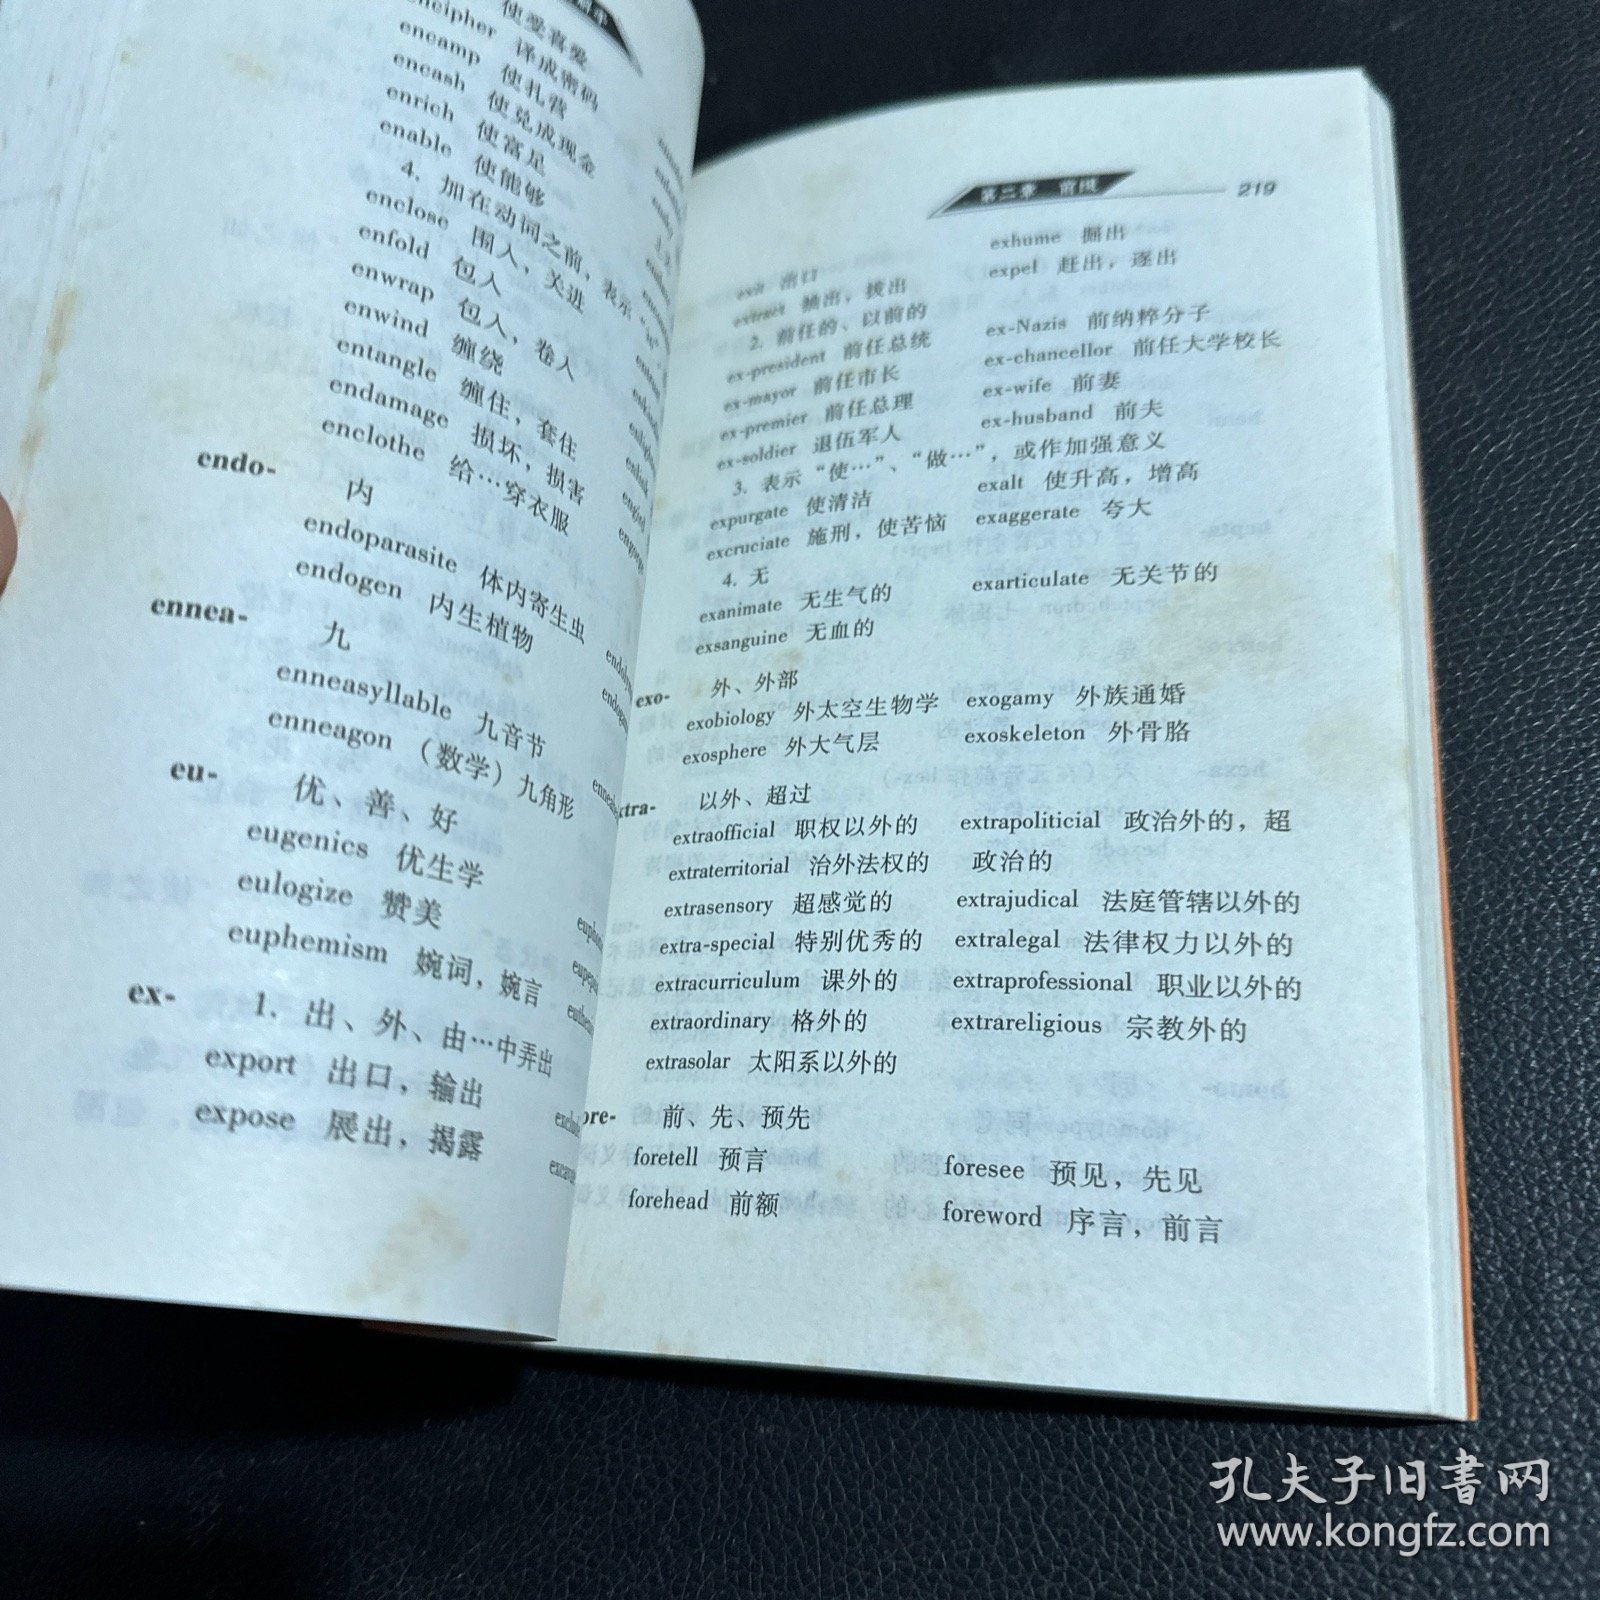 使受喜爱
encipher 译成密码
encamp 使扎营
encash 使兑成现金
enrich 使富足
enable 使能够
4. 加在动词之前，表示
enclose 围入，关进
enfold 包入
enwrap 包入，卷入
enwind 缠绕
entangle 缠住，套住
endamage 损坏，损害
enclothe 给…穿衣服
endo- 内
endoparasite 体内寄生虫
endogen 内生植物
ennea- 九
enneasyllable 九音节
enneagon （数学）九角形
eu- 优、善、好
eugenics 优生学
eulogize 赞美
euphemism 婉词，婉言
ex- 1. 出、外、由…中弄出
export 出口，输出
expose 展出，揭露
第二章 前缀 219
exit 出口 exhume 掘出
extract 抽出，拔出 expel 赶出，逐出
2. 前任的、以前的
ex-president 前任总统 ex-Nazis 前纳粹分子
ex-mayor 前任市长 ex-chancellor 前任大学校长
ex-premier 前任总理 ex-wife 前妻
ex-soldier 退伍军人 ex-husband 前夫
3. 表示“使…”、“做…”，或作加强意义
expurgate 使清洁 exalt 使升高，增高
excruciate 施刑，使苦恼 exaggerate 夸大
4. 无
exanimate 无生气的 exarticulate 无关节的
exsanguine 无血的
exo- 外、外部
exobiology 外太空生物学 exogamy 外族通婚
exosphere 外大气层 exoskeleton 外骨骼
xtra- 以外、超过
extraofficial 职权以外的 extrapoliticial 政治外的，超
extraterritorial 治外法权的 政治的
extrasensory 超感觉的 extrajudical 法庭管辖以外的
extra-special 特别优秀的 extralegal 法律权力以外的
extracurriculum 课外的 extraprofessional 职业以外的
extraordinary 格外的 extrareligious 宗教外的
extrasolar 太阳系以外的
ore- 前、先、预先
foretell 预言 foresee 预见，先见
forehead 前额 foreword 序言，前言
孔夫子旧书网
www.kongfz.com